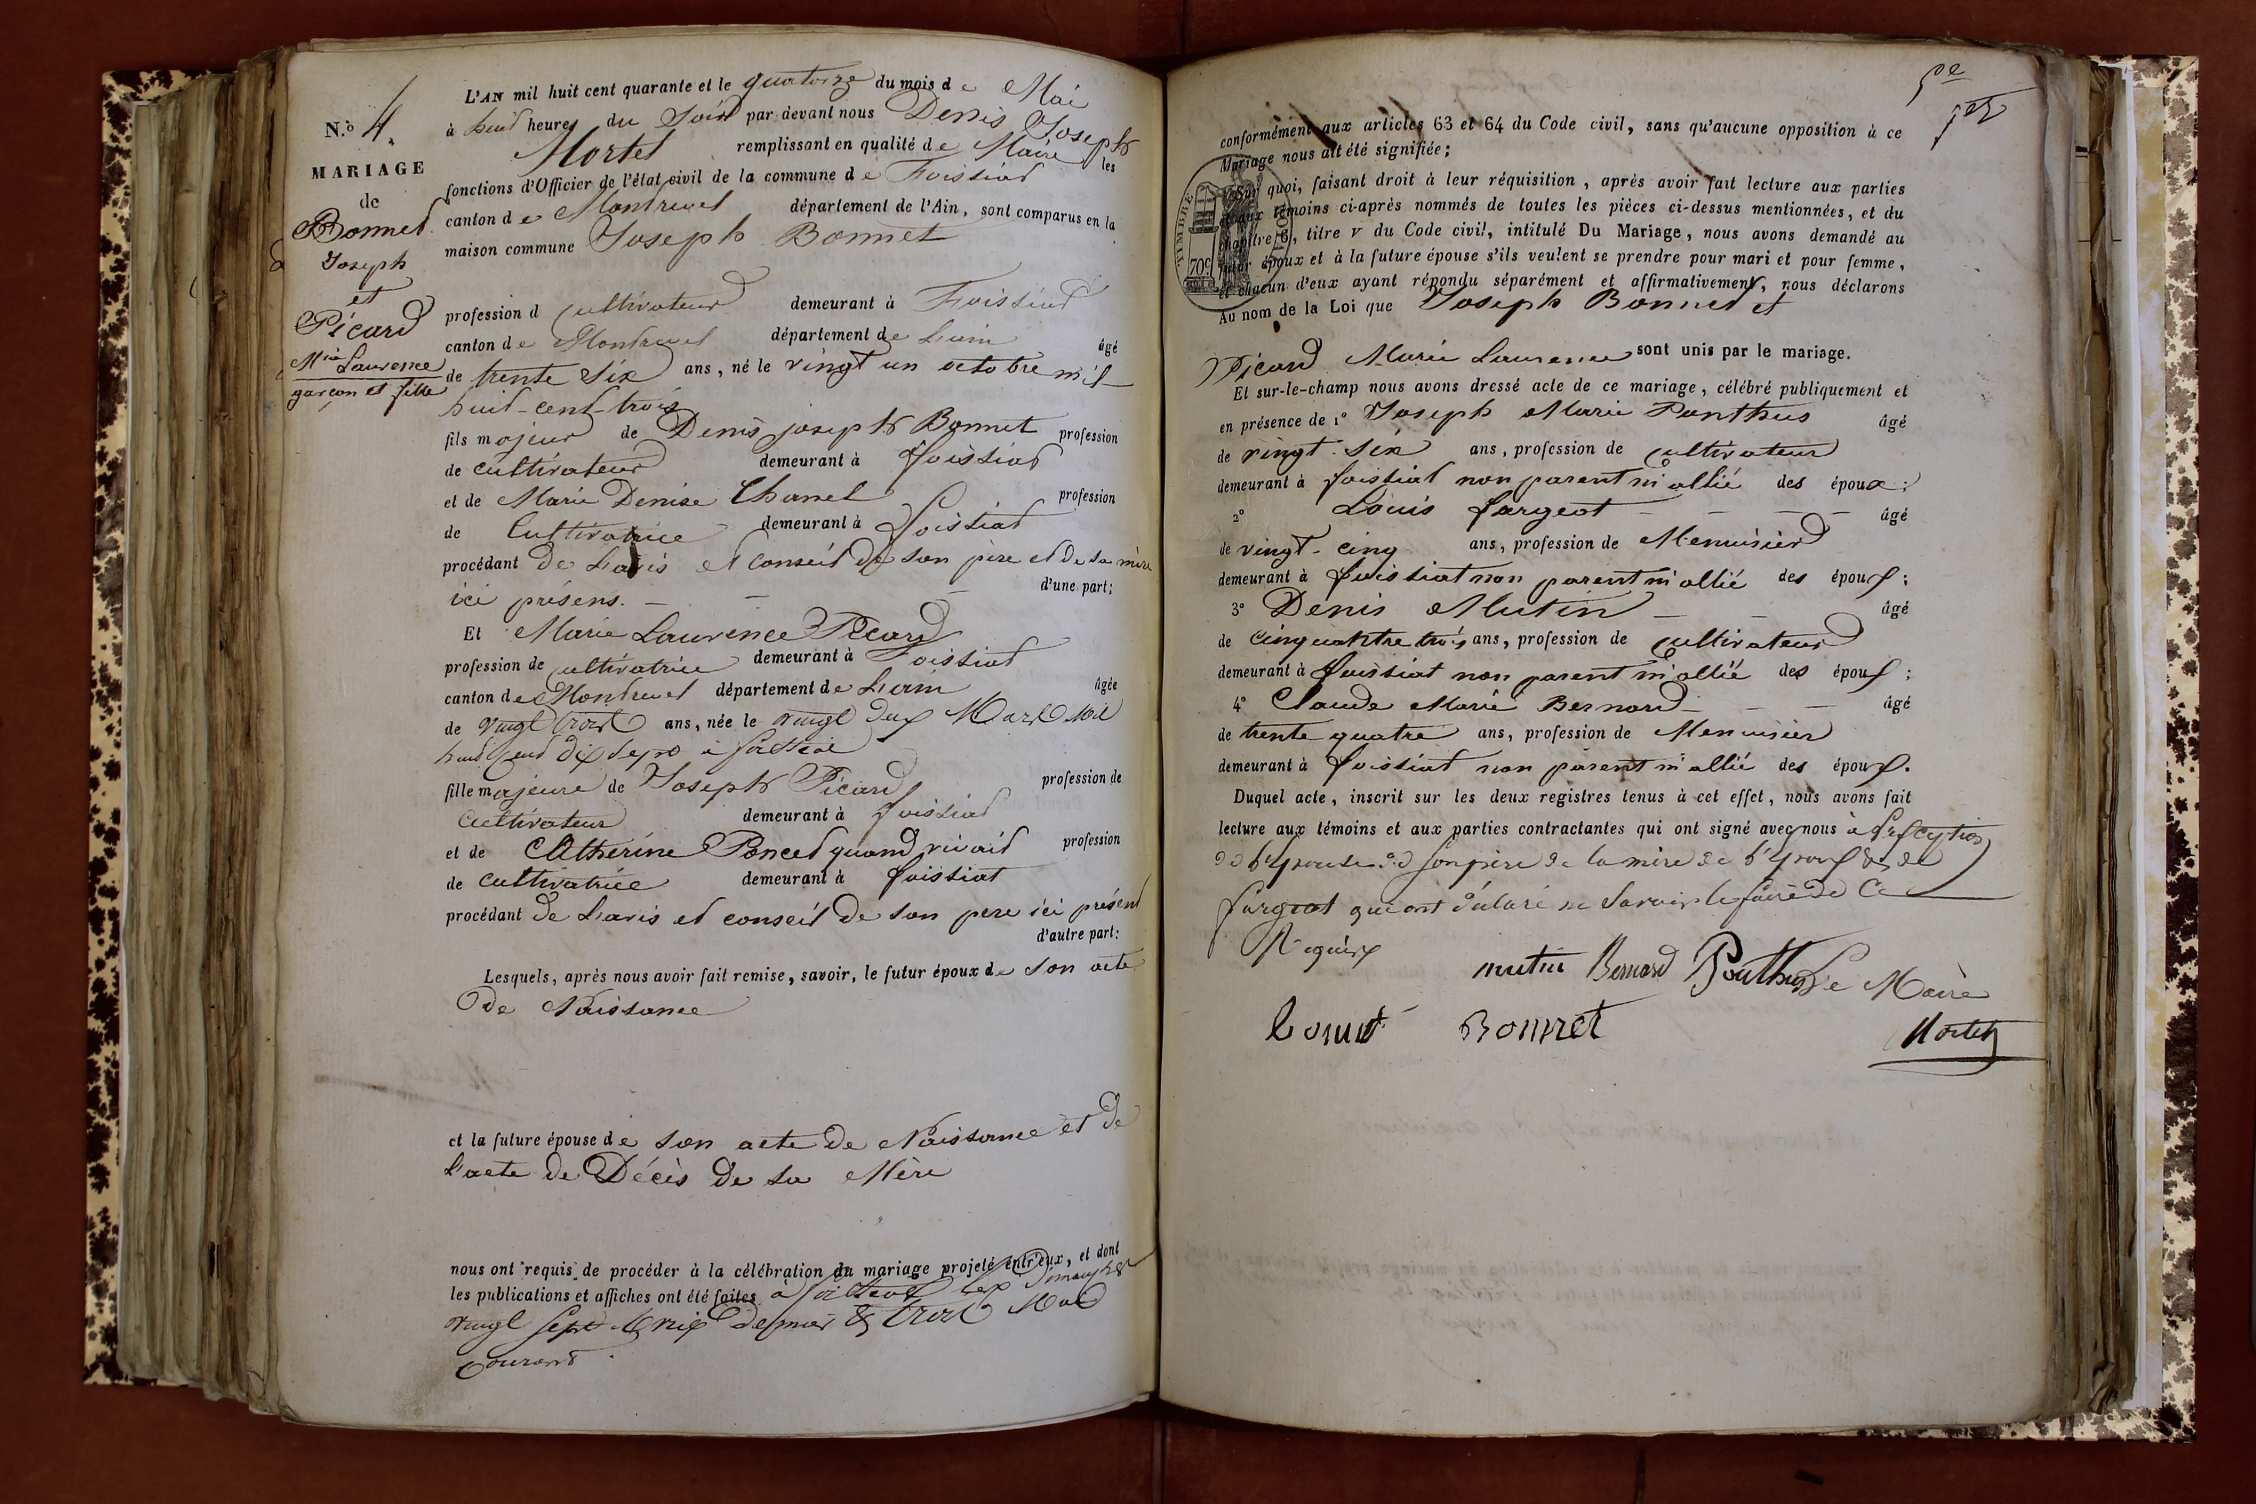 N.º 4.
MARIAGE
de
Bonnet
Joseph
et
Picard
Mie Laurence
garçon et fille
L'AN mil huit cent quarante et le quatorze du mois de Mai
à huit heures du Soir par devant nous Denis Joseph
Mortel remplissant en qualité de Maire les
fonctions d'Officier de l'état civil de la commune de Foissiat
canton de Montrevel département de l'Ain, sont comparus en la
maison commune Joseph Bonnet
profession d cultivateur demeurant à Foissiat
canton de Montrevel département de L'ain âgé
de trente Six ans, né le vingt un octobre mil
huit-cent-trois
fils majeur de Denis joseph Bonnet profession
de cultivateur demeurant à foissiat
et de Marie Denise Chanel profession
de Cultivatrice demeurant à foissiat
procédant de L'avis et conseil de son père et de sa mère
ici présens. d'une part;
Et Marie Laurence Picard
profession de cultivatrice demeurant à Foissiat
canton de Montrevel département de L'ain âgée
de vingt trois ans, née le vingt deux Mars Mil
huit Cent dix Sept à foissiat
fille majeure de Joseph Picard profession de
Cultivateur demeurant à foissiat
et de Cathérine Poncet quand vivait profession
de cultivatrice demeurant à foissiat
procédant de L'avis et conseil de son pere ici présent
d'autre part:
Lesquels, après nous avoir fait remise, savoir, le futur époux de son acte
de Naissance
et la future épouse de son acte de Naissance et de
L'acte de Décès de sa Mère
nous ont requis de procéder à la célébration du mariage projeté entr'eux, et dont
les publications et affiches ont été faites à foissiat les Dimanches
vingt Sept dernier & trois Mai
Courant.
conformément aux articles 63 et 64 du Code civil, sans qu'aucune opposition à ce
Mariage nous ait été signifiée;
TIMBRE ROYAL
70c
Sur quoi, faisant droit à leur réquisition, après avoir fait lecture aux parties
et aux témoins ci-après nommés de toutes les pièces ci-dessus mentionnées, et du
chapitre 6, titre v du Code civil, intitulé Du Mariage, nous avons demandé au
futur époux et à la future épouse s'ils veulent se prendre pour mari et pour femme,
et chacun d'eux ayant répondu séparément et affirmativement, nous déclarons
Au nom de la Loi que Joseph Bonnet et
Picard Marie Laurence sont unis par le mariage.
Et sur-le-champ nous avons dressé acte de ce mariage, célébré publiquement et
en présence de 1º Joseph Marie Ponthus âgé
de vingt-six ans, profession de cultivateur
demeurant à foissiat non parent ni allié des époux;
2º Louis fargeot âgé
de vingt-cinq ans, profession de Menuisier
demeurant à foissiat non parent ni allié des époux;
3º Denis Mutin âgé
de cinquantre trois ans, profession de cultivateur
demeurant à foissiat non parent ni allié des époux;
4º Claude Marie Bernard âgé
de trente quatre ans, profession de Menuisier
demeurant à foissiat non parent ni allié des époux.
Duquel acte, inscrit sur les deux registres tenus à cet effet, nous avons fait
lecture aux témoins et aux parties contractantes qui ont signé avec nous à L'exception
de L'épouse de son père de la mère de L'époux & de
fargeot qui ont déclaré ne savoir le faire de Ce
Requis
mutin Bernard Ponthus Le Maire
bonnet Bonnet Mortel